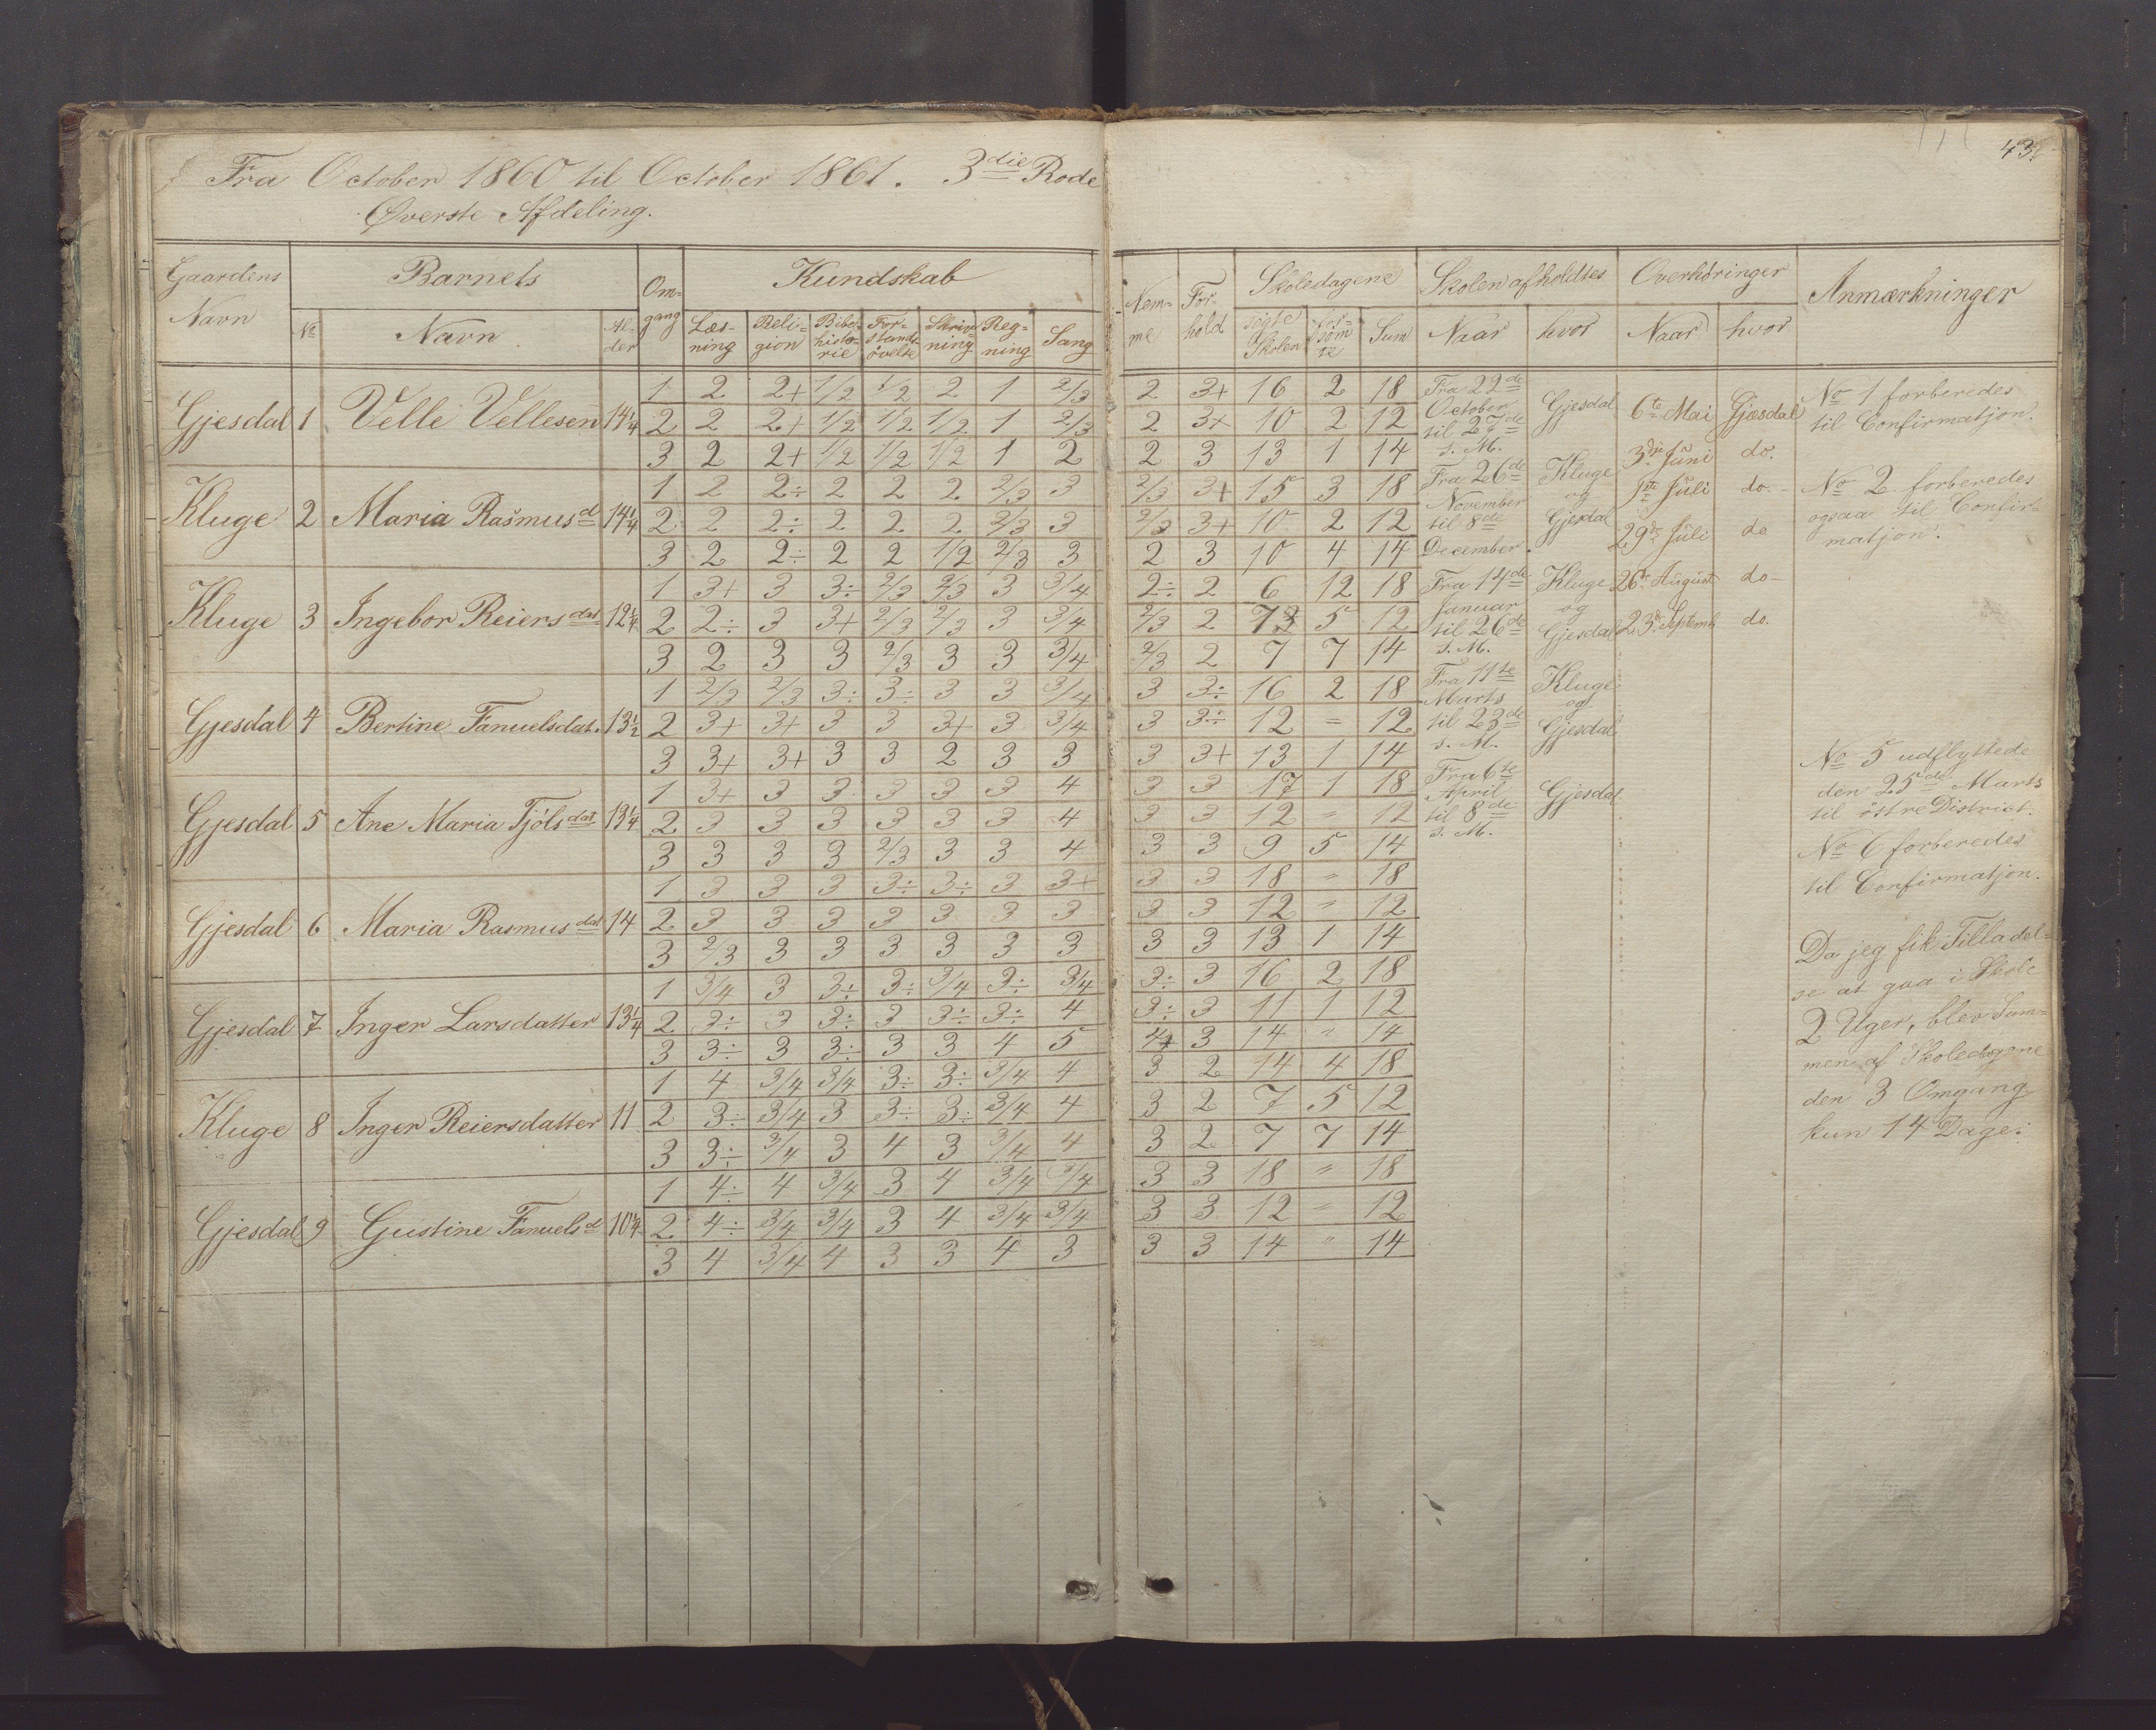 43
Fra October 1860 til October 1861. 3die Rode
Øverste Afdeling.
Gaardens Navn | Barnets | Om-gang | Kundskab | Nem-me | For-hold | Skoledagene | Skolen afholdtes | Overhøringer | Anmærkninger
No | Navn | Al-der | Læs-ning | Reli-gion | Bibel-histo-rie | For-stands-øvelse | Skriv-ning | Reg-ning | Sang | søgte Skolen | for-søm-te | Sum | Naar | hvor | Naar | hvor
Gjesdal 1 Velle Vellesen 14 1/4
1 2 2+ 1/2 1/2 2 1 2/3 2 3+ 16 2 18
2 2 2+ 1/2 1/2 1/2 1 2/3 2 3+ 10 2 12
3 2 2+ 1/2 1/2 1/2 1 2 2 3 13 1 14
Kluge 2 Maria Rasmusd 14 1/4
1 2 2÷ 2 2 2 2/3 3 2/3 3+ 15 3 18
2 2 2÷ 2 2 2 2/3 3 2/3 3+ 10 2 12
3 2 2÷ 2 2 1/2 2/3 3 2 3 10 4 14
Kluge 3 Ingebor Reiersdat 12 1/4
1 3+ 3 3÷ 2/3 2/3 3 3/4 2÷ 2 6 12 18
2 2÷ 3 3+ 2/3 2/3 3 3/4 2/3 2 7 5 12
3 2 3 3 2/3 3 3 3/4 2/3 2 7 7 14
Gjesdal 4 Bertine Fanuelsdat. 13 1/2
1 2/3 2/3 3÷ 3÷ 3 3 3/4 3 3÷ 16 2 18
2 3+ 3+ 3 3 3+ 3 3/4 3 3÷ 12 = 12
3 3+ 3+ 3 3 2 3 3 3 3+ 13 1 14
Gjesdal 5 Ane Maria Tjølsdat 13 1/4
1 3+ 3 3 3 3 3 4 3 3 17 1 18
2 3 3 3 3 3 3 4 3 3 12 " 12
3 3 3 3 2/3 3 3 4 3 3 9 5 14
Gjesdal 6 Maria Rasmusdat 14
1 3 3 3 3÷ 3÷ 3 3+ 3 3 18 " 18
2 3 3 3 3 3 3 3 3 3 12 " 12
3 2/3 3 3 3 3 3 3 3 3 13 1 14
Gjesdal 7 Inger Larsdatter 13 1/4
1 3/4 3 3÷ 3÷ 3/4 3÷ 3/4 3÷ 3 16 2 18
2 3÷ 3 3÷ 3 3÷ 3÷ 4 3÷ 3 11 1 12
3 3÷ 3 3÷ 3 3 4 5 4+ 3 14 " 14
Kluge 8 Inger Reiersdatter 11
1 4 3/4 3/4 3÷ 3÷ 3/4 4 3 2 14 4 18
2 3÷ 3/4 3 3÷ 3÷ 3/4 4 3 2 7 5 12
3 3÷ 3/4 3 4 3 3/4 4 3 2 7 7 14
Gjesdal 9 Gustine Fanuelsd 10 1/4
1 4÷ 4 3/4 3 4 3/4 3/4 3 3 18 " 18
2 4÷ 3/4 3/4 3 4 3/4 3/4 3 3 12 " 12
3 4 3/4 4 3 3 4 3 3 3 14 " 14
Fra 22de
October
til 27de
s. M.
Gjesdal
Fra 26de
November
til 8de
December.
Kluge
og
Gjesdal
Fra 14de
Januar
til 26de
s. M.
Kluge
og
Gjesdal
Fra 11te
Marts
til 23de
s. M.
Kluge
og
Gjesdal
Fra 6te
April
til 8de
s. M.
Gjesdal
6te Mai Gjesdal
3die Juni do.
1ste Juli do.
29de Juli do
26de August do
23de Septemb do.
No 1 forberedes
til Confirmatjon.
No 2 forberedes
ogsaa til Confir-
matjon.
No 5 udflyttede
den 25de Marts
til östre District.
No 6 forberedes
til Confirmatjon.
Da jeg fik Tilladel-
se at gaa i Skole
2 Uger, blev Sum-
men af Skoledagene
den 3 Omgang
kun 14 Dage.